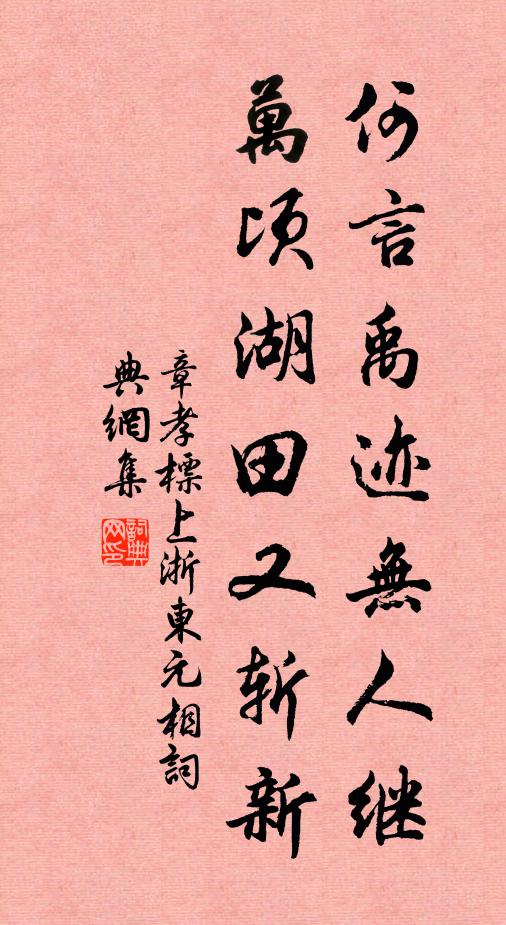 何言禹迹無人继
萬頃湖田又斬新
章孝標上浙東元相詞
典網集
詞典网印